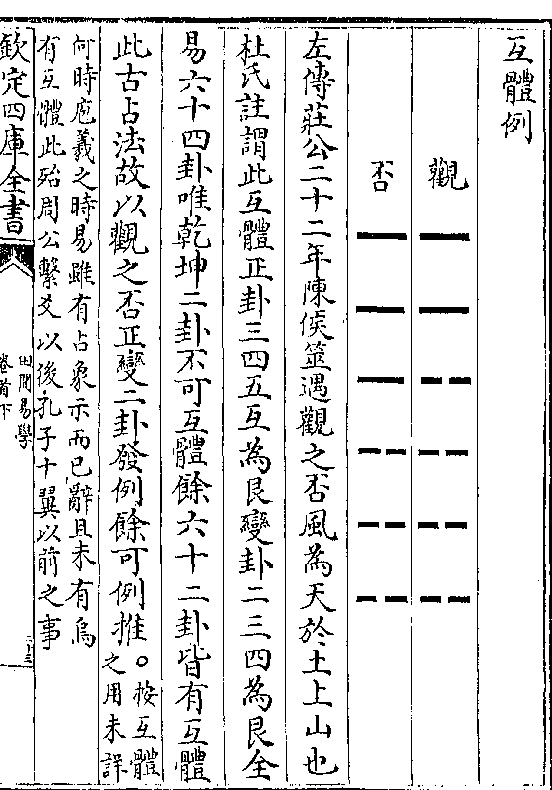 互體例
觀
否
左傳莊公二十二年陳侯筮遇觀之否風為天於土上山也
杜氏註謂此互體正卦三四五互為艮變卦二三四為艮全
易六十四卦唯乾坤二卦不可互體餘六十二卦皆有互體
此古占法故以觀之否正變二卦發例餘可例推。按互體
之用未詳
何時庖羲之時易雖有占象示而已辭且未有烏
有互體此殆周公繫爻以後孔子十翼以前之事
欽定四庫全書
周易學
卷首下
二十三